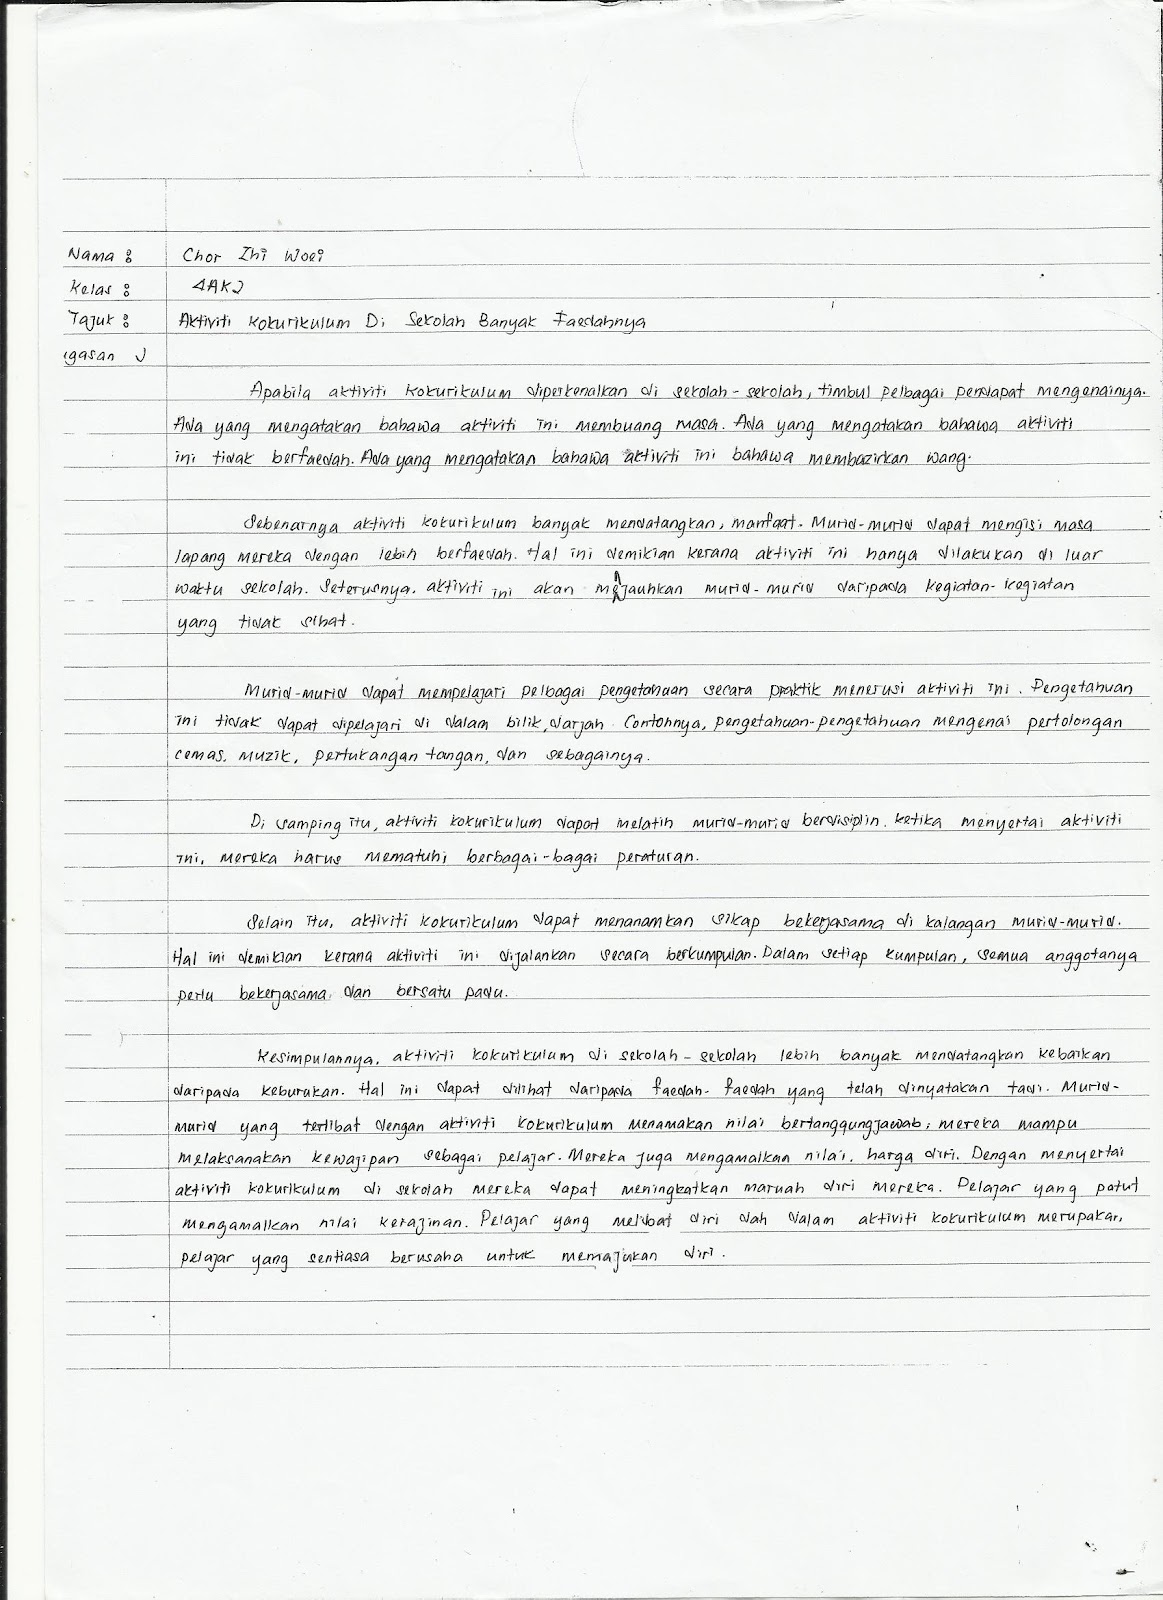 Nama : Chor Zhi Woei
Kelas : 4AK2
Tajuk : Aktiviti Kokurikulum Di Sekolah Banyak Faedahnya
gasan )
Apabila aktiviti kokurikulum diperkenalkan di sekolah-sekolah, timbul pelbagai pendapat mengenainya.
Ada yang mengatakan bahawa aktiviti ini membuang masa. Ada yang mengatakan bahawa aktiviti
ini tidak berfaedah. Ada yang mengatakan bahawa aktiviti ini bahawa membazirkan wang.
Sebenarnya aktiviti kokurikulum banyak mendatangkan, manfaat. Murid-murid dapat mengisi masa
lapang mereka dengan lebih berfaedah. Hal ini demikian kerana aktiviti ini hanya dilakukan di luar
waktu sekolah. Seterusnya, aktiviti ini akan menjauhkan murid-murid daripada kegiatan-kegiatan
yang tidak sihat.
Murid-murid dapat mempelajari pelbagai pengetahuan secara praktik menerusi aktiviti ini. Pengetahuan
ini tidak dapat dipelajari di dalam bilik, darjah. Contohnya, pengetahuan-pengetahuan mengenai pertolongan
cemas, muzik, pertukangan tangan, dan sebagainya.
Di samping itu, aktiviti kokurikulum dapat melatih murid-murid berdisiplin. Ketika menyertai aktiviti
ini, mereka harus mematuhi berbagai-bagai peraturan.
Selain itu, aktiviti kokurikulum dapat menanamkan sikap bekerjasama di kalangan murid-murid.
Hal ini demikian kerana aktiviti ini dijalankan secara berkumpulan. Dalam setiap kumpulan, semua anggotanya
perlu bekerjasama dan bersatu padu.
Kesimpulannya, aktiviti kokurikulum di sekolah-sekolah lebih banyak mendatangkan kebaikan
daripada keburukan. Hal ini dapat dilihat daripada faedah-faedah yang telah dinyatakan tadi. Murid-
murid yang terlibat dengan aktiviti kokurikulum menamakan nilai bertanggungjawab, mereka mampu
melaksanakan kewajipan sebagai pelajar. Mereka juga mengamalkan nilai, harga diri. Dengan menyertai
aktiviti kokurikulum di sekolah mereka dapat meningkatkan maruah diri mereka. Pelajar yang patut
mengamalkan nilai kerajinan. Pelajar yang melibat diri dah dalam aktiviti kokurikulum merupakan
pelajar yang sentiasa berusaha untuk memajukan diri.